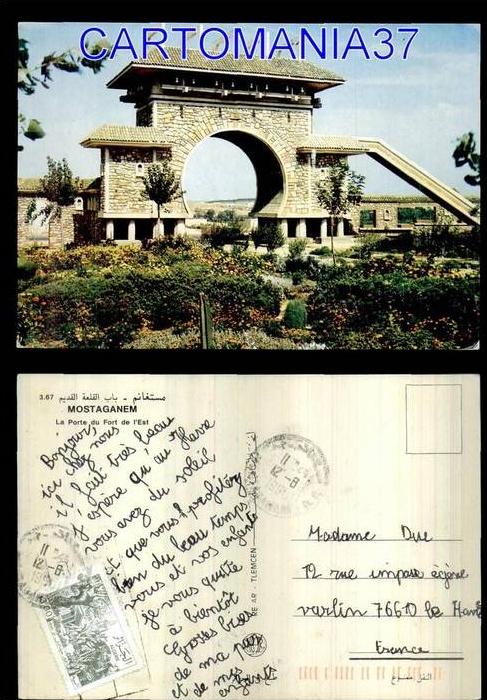 CARTOMANIA37
3.67 مستغانم - باب القلعة القديم
MOSTAGANEM
La Porte du Fort de l'Est
Bonjour,
ici chez nous
il fait très beau
J'espère qu'au Havre
vous avez du soleil
et que vous profitez
bien du beau temps
vous et vos enfants
je vous quitte
à bientôt
Grosses bises
de ma part
et de mes
enfants
TLEMCEN
11
12-8
11
12-8
Madame Due
12 rue impase eugène
varlin 76610 le Havre
France
النقل ممنوع